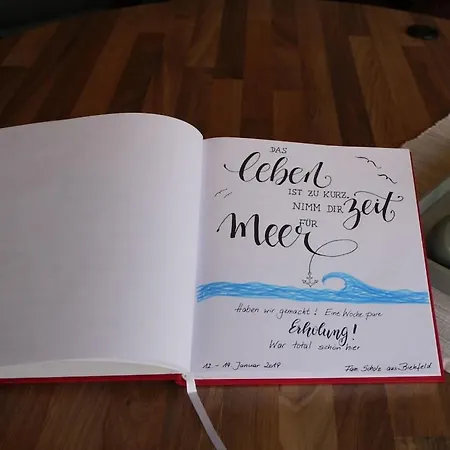 DAS
leben
IST ZU KURZ,
NIMM DIR zeit
FÜR
Meer
Haben wir gemacht! Eine Woche pure
Erholung!
War total schön hier
12. - 19. Januar 2019
Fam. Scholz aus Bielefeld